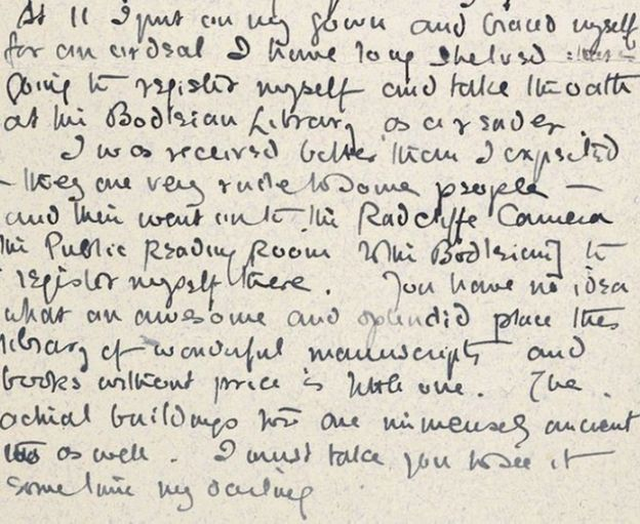 At 11 I put on my gown and braced myself
for an ordeal I have long shelved
going to register myself and take the oath
at the Bodleian Library as a reader.
I was received better than I expected
– they are very rude to some people –
and then went on to the Radcliffe Camera
the Public Reading Room [of the Bodleian] to
register myself there. You have no idea
what an awesome and splendid place this
library of wonderful manuscripts and
books without price is little one. The
actual buildings are immensely ancient
as well. I must take you to see it
some time my darling